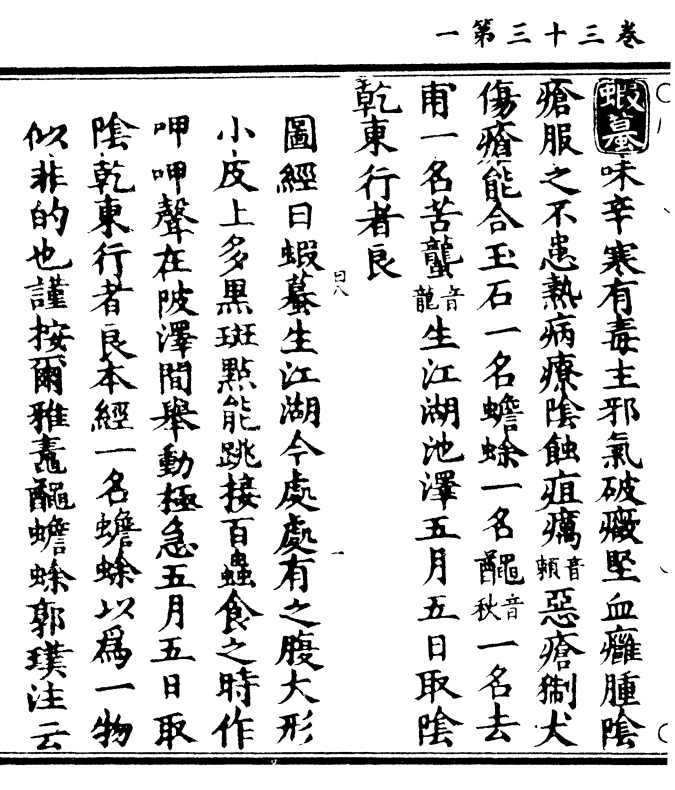 卷三十三第一
蝦蟇味辛寒有毒主邪氣破癥堅血癰腫陰
瘡服之不患熱病療陰蝕疽癘音賴惡瘡猘犬
傷瘡能合玉石一名蟾蜍一名䵷音秋一名去
甫一名苦蠪音龍生江湖池澤五月五日取陰
乾東行者良
圖經曰蝦蟇生江湖今處處有之腹大形
小皮上多黑斑點能跳接百蟲食之時作
呷呷聲在陂澤間舉動極急五月五日取
陰乾東行者良本經一名蟾蜍以爲一物
似非的也謹按爾雅鼁䵷蟾蜍郭璞注云